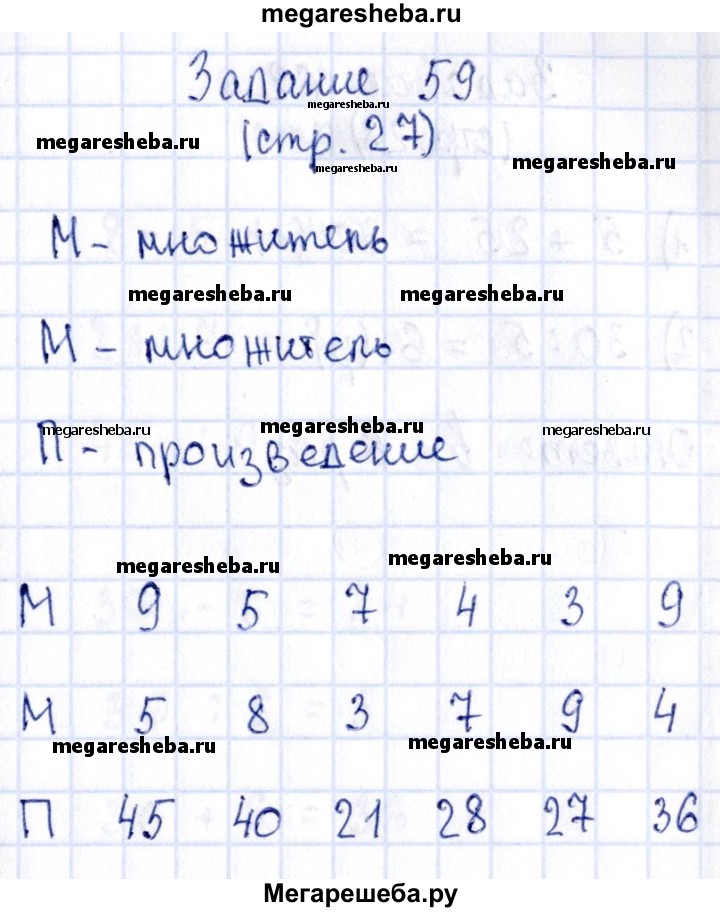 megaresheba.ru
Задание 59
megaresheba.ru
megaresheba.ru
(стр. 27)
megaresheba.ru
megaresheba.ru
М - множитель
megaresheba.ru megaresheba.ru
М - множитель
megaresheba.ru megaresheba.ru megaresheba.ru
П - произведение
megaresheba.ru megaresheba.ru
М 9 5 7 4 3 9
М 5 8 3 7 9 4
megaresheba.ru megaresheba.ru
П 45 40 21 28 27 36
Мегарешеба.ру